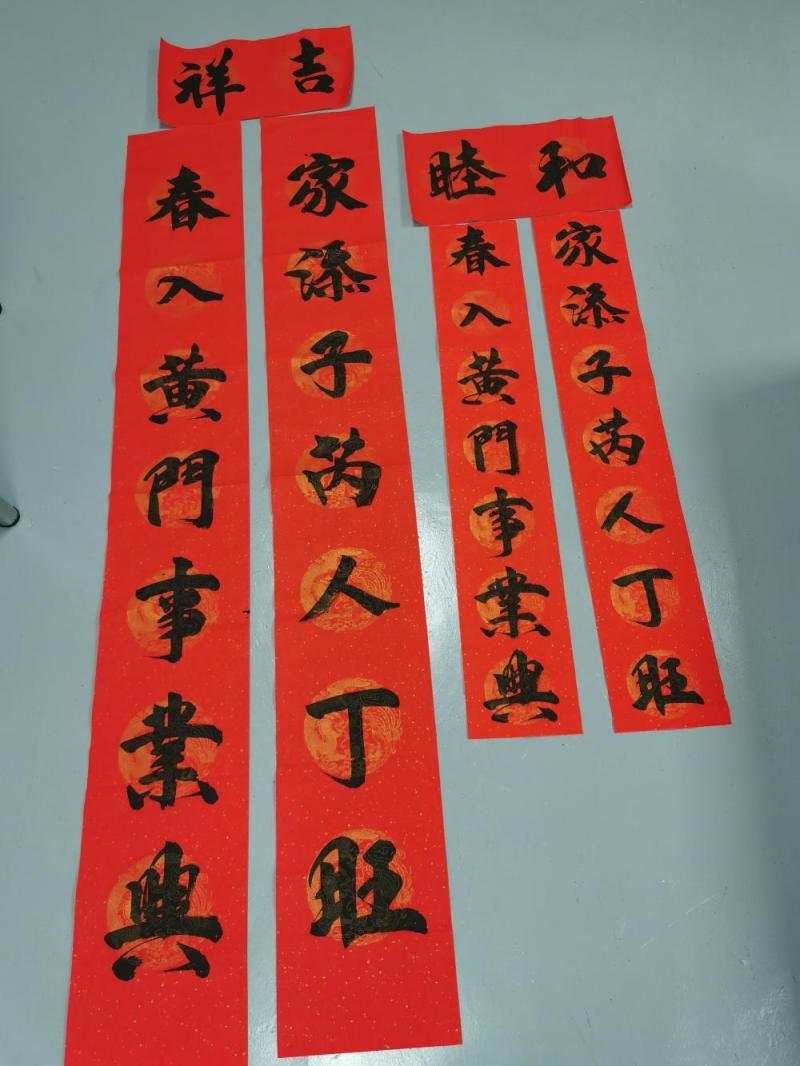 吉祥
家添子芮人丁旺
春入黄門事業興
和睦
家添子芮人丁旺
春入黄門事業興